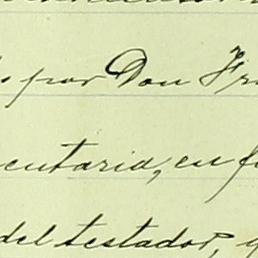 por Don Fr
entaria, en f
del testador,